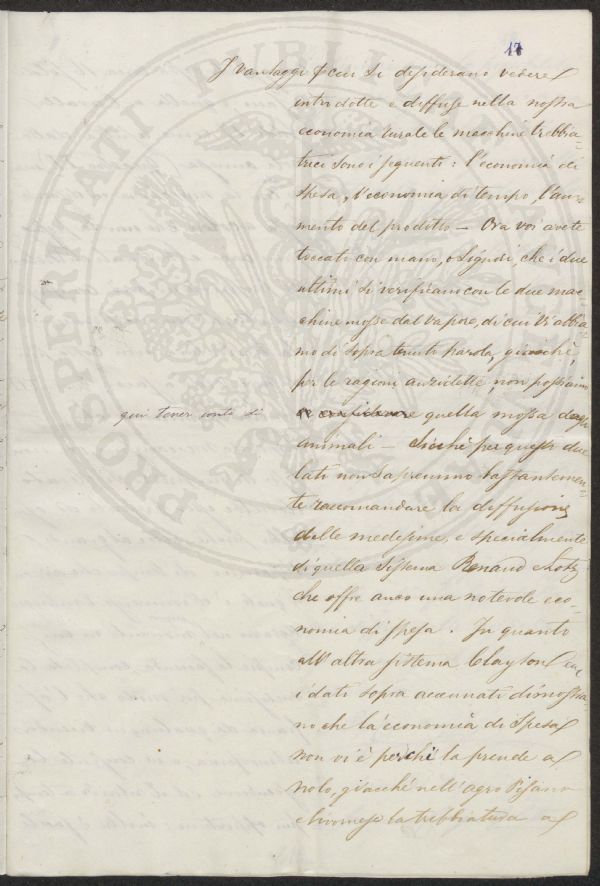 17
I vantaggi p cui si desiderano vedere
introdotte e diffuse nella nostra
economia rurale le macchine trebbia=
trici sono i seguenti: l'economia di
spesa, l'economia di tempo, l'au=
mento del prodotto — Ora voi avete
toccato con mano, o Signori, che i due
ultimi si verificano con le due mac=
chine mosse dal vapore, di cui vi abbia=
mo di sopra tenuto parola, giacchè,
per le ragioni anzidette, non possiamo
qui tener conto di
quella mossa dagli
animali — Sicchè per questi due
lati non sapremmo bastantemen=
te raccomandare la diffusione
delle medesime, e specialmente
di quella Sistema Renaud e Lotz
che offre anco una notevole eco=
nomia di spesa. In quanto
all'altra sistema Clayton
i dati sopra accennati dimostra
no che la economia di spesa
non vi è perchè la prende a
nolo, giacchè nell'agro Pisano
e Livornese la trebbiatura a
PROSPERITATI PUBLICAE